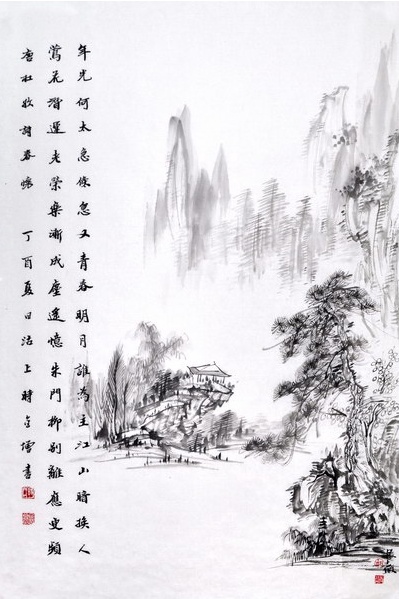 年光何太急倏忽又青春明月誰為主江山暗換人
鶯花潛運老榮樂漸成塵遙憶朱門柳別離應更頻
唐杜牧詩春懷 丁酉夏日沽上時書